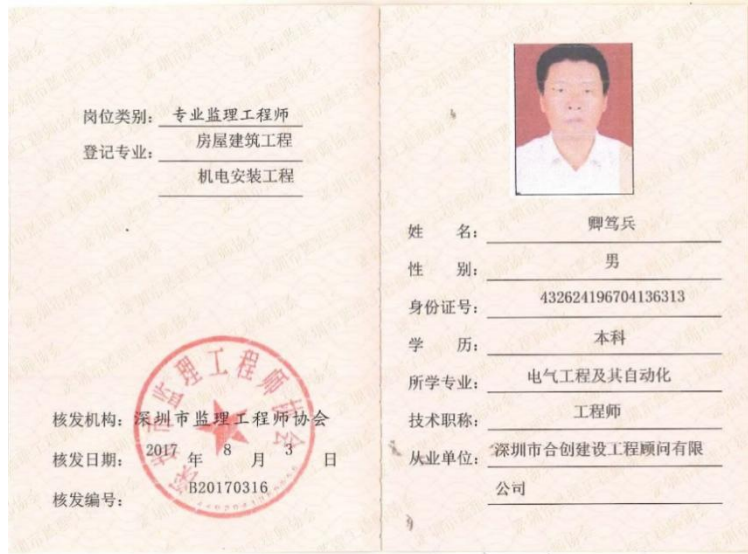 岗位类别: 专业监理工程师
登记专业: 房屋建筑工程
机电安装工程
核发机构: 深圳市监理工程师协会
核发日期: 2017 年 8 月 3 日
核发编号: B20170316
深圳市监理工程师协会
姓 名: 卿笃兵
性 别: 男
身份证号: 432624196704136313
学 历: 本科
所学专业: 电气工程及其自动化
技术职称: 工程师
从业单位: 深圳市合创建设工程顾问有限
公司